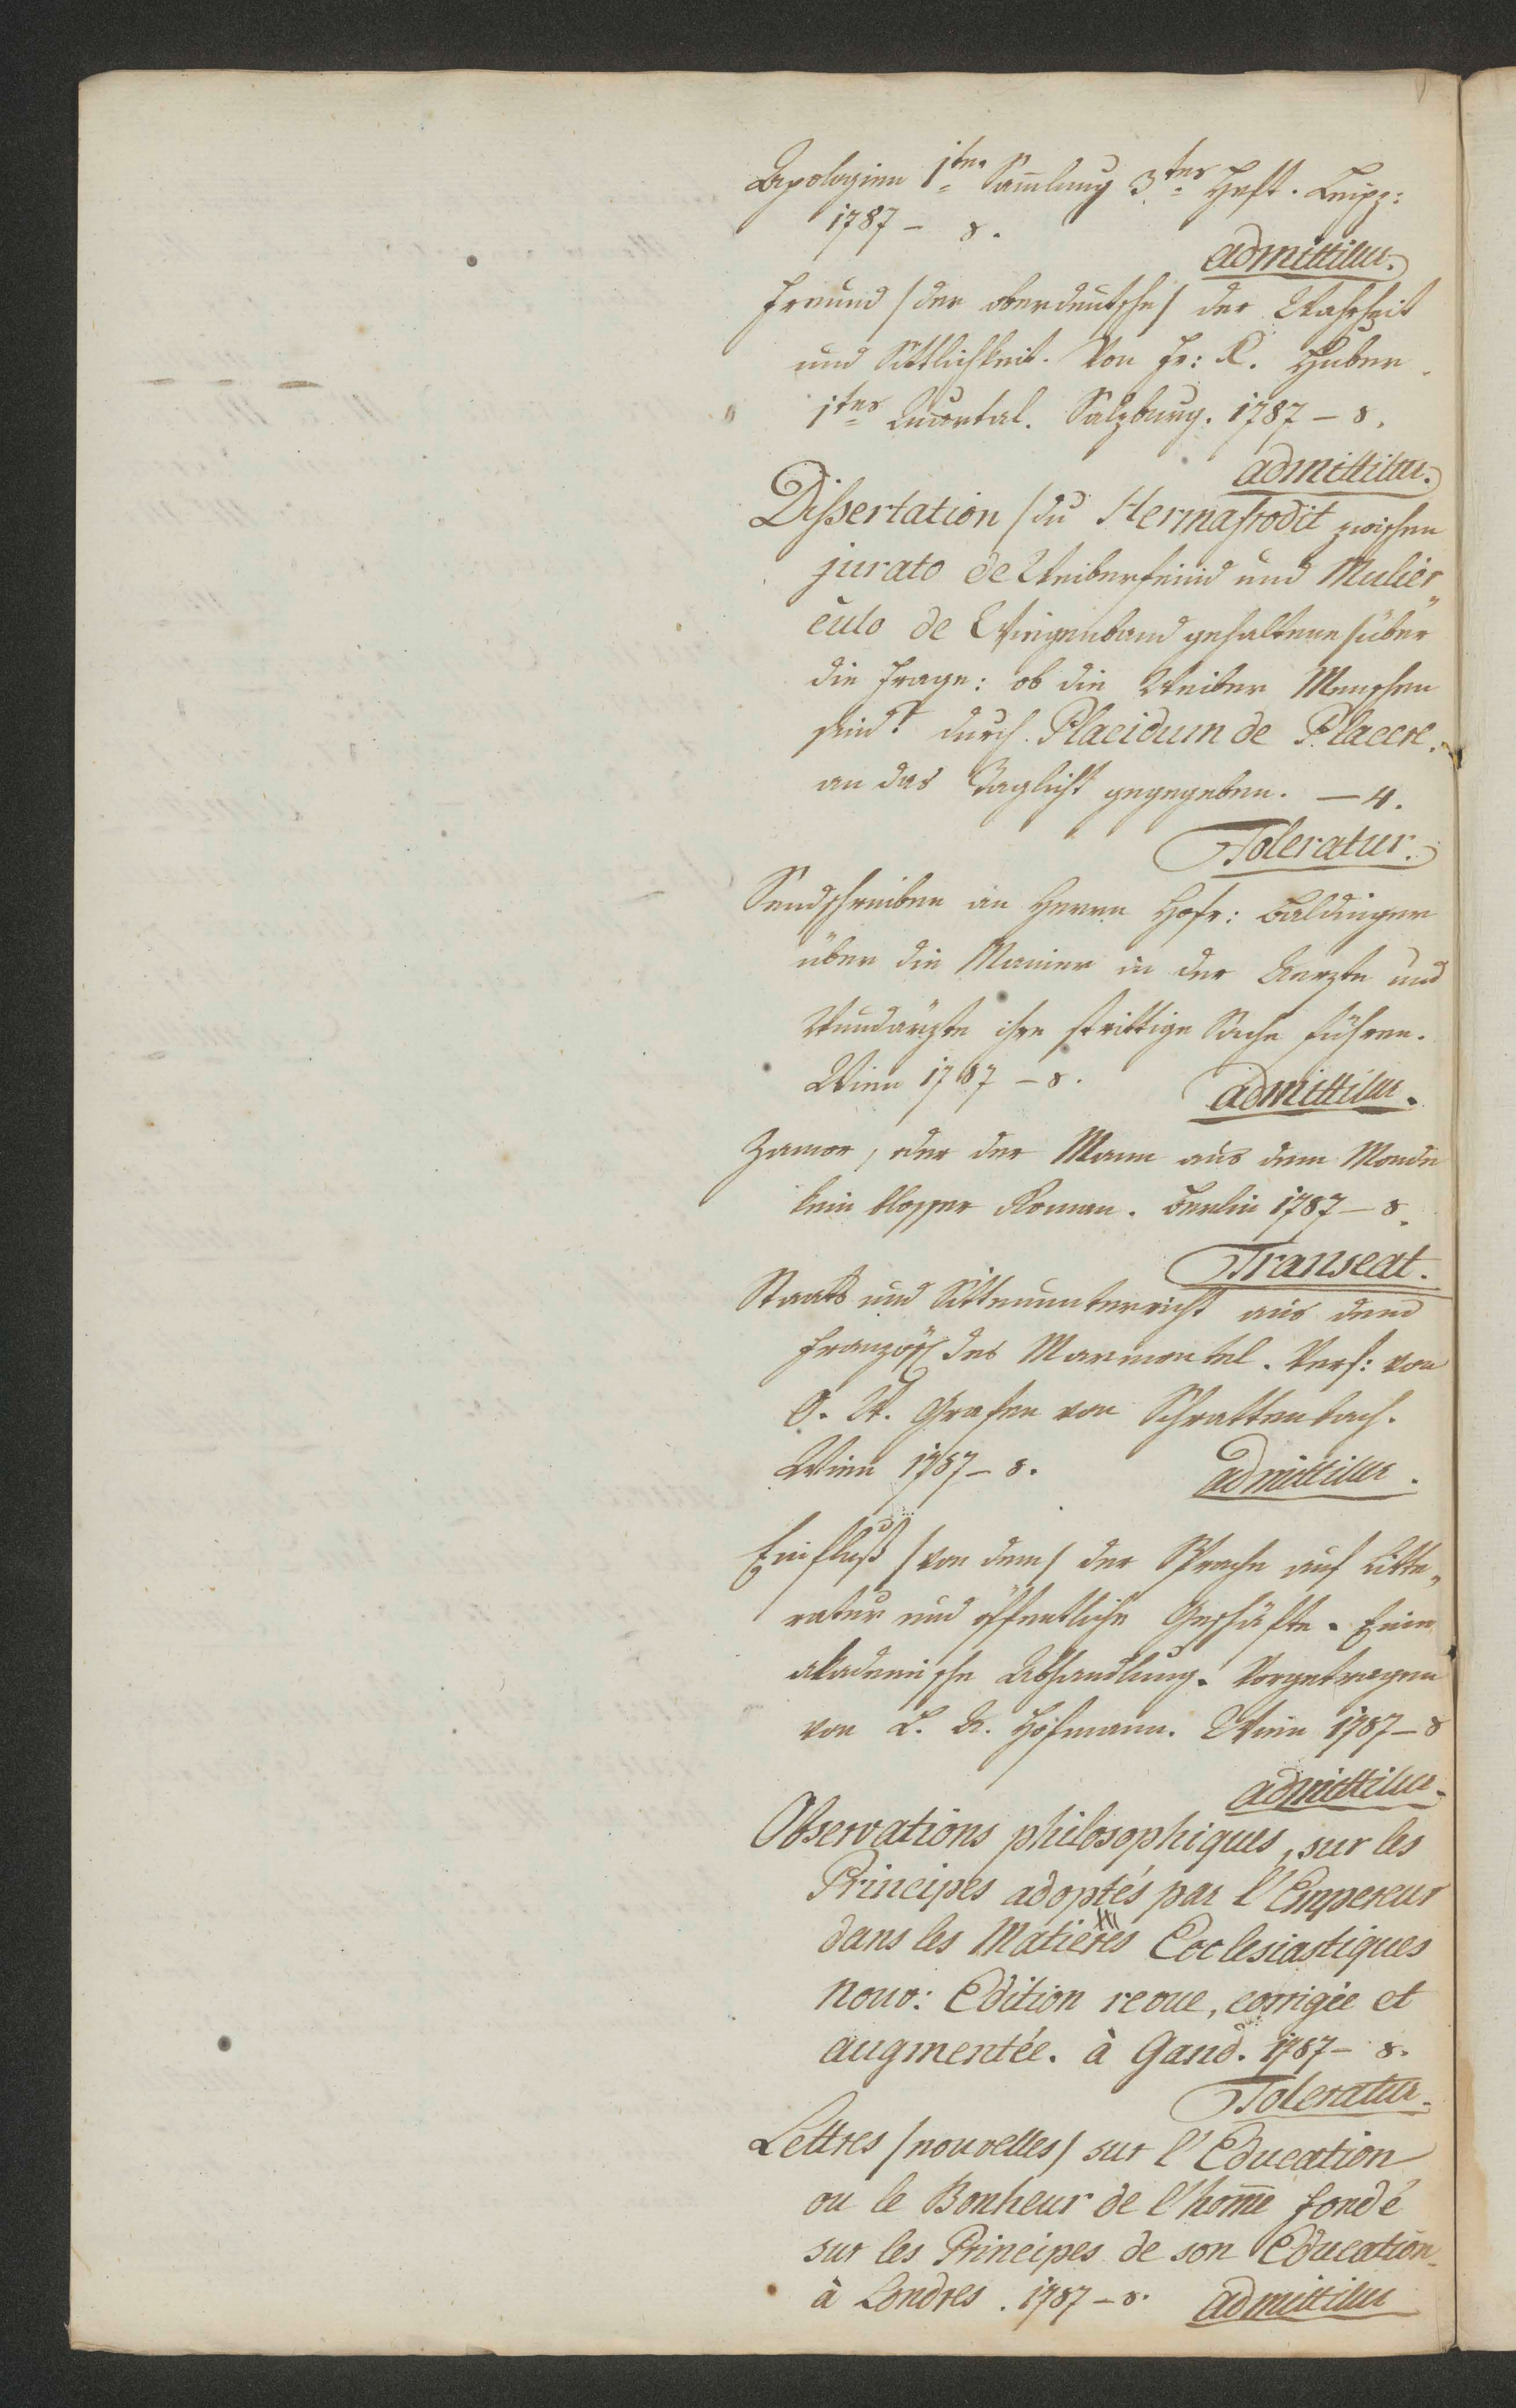 Apologien 1te Sam̄lung 3tes Heft. Leipz:
1787 – 8.
admittitur.
Freund /der oberdeutsche/ der Wahrheit
und Sittlichkeit. Von Fr: X. Huber
1tes Quartal. Salzburg. 1787 – 8.
admittitur.
Dissertation /du Hermafrodit zwischen
jurato de Weiberfeind und Mulier„
culo de Wiegenband gehaltene/ über
die Frage: ob die Weiber Menschen
sind? durch Placidum de Placere.
an das Taglicht gegegeben. – 4.
Toleratur.
Sendschreiben an Herrn Hofr: Baldinger
über die Manier in der Aerzte und
Wundärzte ihre strittige Sache führen.
Wien 1787 – 8.
admittitur.
Zamor, oder der Mann aus dem Monde
kein blosser Roman. Berlin 1787 – 8.
Transeat.
Staats und Sittenunterricht aus dem
Französ: des Marmontel. Verf: von
O. W. Grafen von Schrattenbach.
Wien 1787 – 8.
admittitur.
Einfluß /von dem/ der Sprache auf Litte„
ratur und öffentliche Geschäfte. Eine
akademische Abhandlung. Vorgetragen
von L. A. Hofmann. Wien 1787 – 8
admittitur.
Observations philosophiques, sur les
Principes adoptés par l'Empereur
dans les Matières Ecclesiastiques
nouv: Edition revue, corrigée et
augmentée. à Gand. 1787 – 8.
Toleratur.
Lettres /nouvelles/ sur l'Education
ou le Bonheur de l'hom̄e fondé
sur les Principes de son Education
à Londres. 1787 – 8.
admittitur